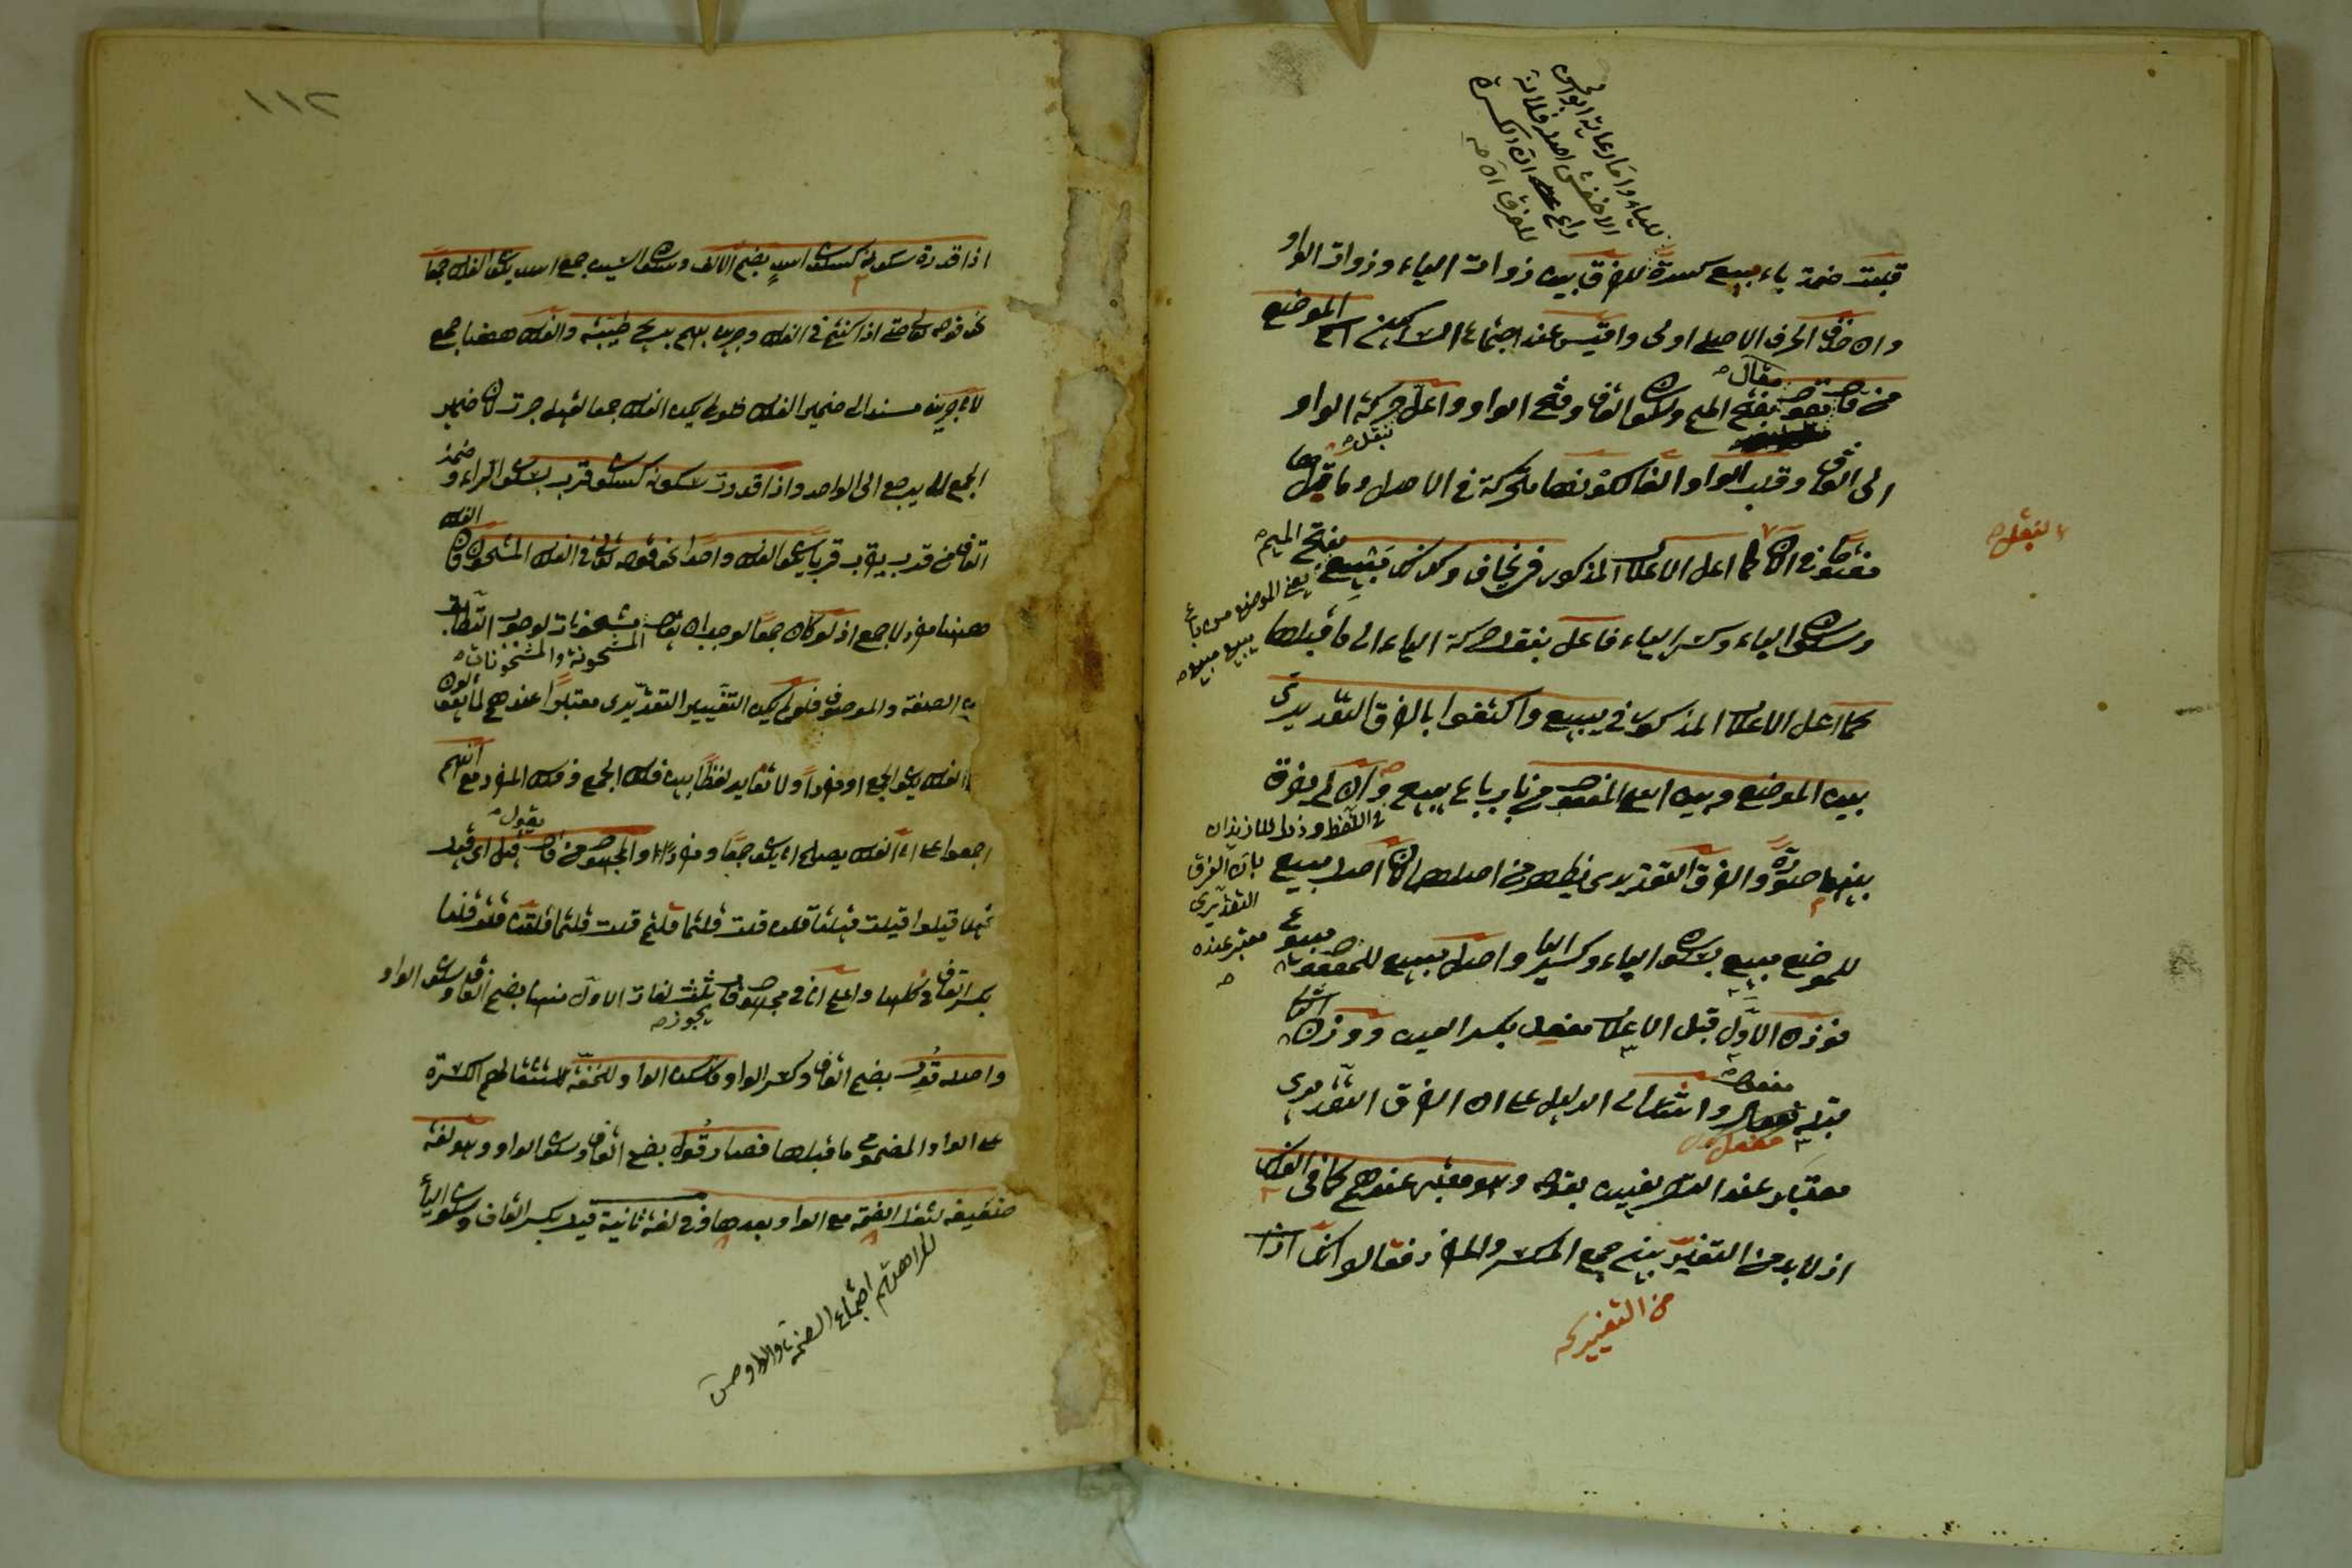 قلبت ضمة ياء بيع كسرة للفرق بين ذوات الياء وذوات الواو
وان حذف الحرف الاصلي اولى واقيس عند اجتماع الساكنين اسم الموضع
من قال يقول مقال بفتح الميم وسكون القاف وفتح الواو واعل حركة الواو
الى القاف وقلب الواو الفا لكونها متحركة في الاصل وما قبلها
مفتوحا في الآن كما اعل الاعلال المذكور في يخاف وكذلك مبيع بفتح الميم
وسكون الياء وكسر الياء فاعل بنقل حركة الياء الى ما قبلها
كما اعل الاعلال المذكور في يبيع واكتفوا بالفرق التقديري
بين الموضع وبين اسم المفعول من باب باع يبيع وان لم يفرق
بينهما صورة والفرق التقديري يظهر من اصلهما لان اصل مبيع
للموضع مبيع بسكون الياء وكسر الياء واصل مبيع للمفعول مبيوع
فوزن الاول قبل الاعلال مفعل بكسر العين ووزن الثاني
قبله مفعول واشار الى الدليل على ان الفرق التقديري
معتبر عند الصرفيين بقوله وهو معتبر عندهم كما في الفلك
اذ لا بد من التغيير بين جمع المكسر والمفرد فقالوا انما اذا
بنقل
لنقل
من التغيير
يعني الموضع من باع
يبيع مبيع
في اللفظ وذلك
بان الفرق
التقديري
معتبر عنده
١١٢
اذا قدرت سكونه كسكون اسد بضم الالف وسكون السين جمع اسد يكون الفلك جمعا
نحو قوله تعالى حتى اذا كنتم في الفلك وجرين بهم بريح طيبة والفلك ههنا جمع
لان جرين مسند الى ضمير الفلك فلو لم يكن الفلك جمعا لقيل جرت لان ضمير
الجمع لا يرجع الى الواحد واذا قدرت سكونه كسكون قرب بسكون الراء وضمة
القاف من قرب يقرب قربا يكون الفلك واحدا نحو قوله تعالى في الفلك المشحون فان الفلك
ههنا مفرد لا جمع اذ لو كان جمعا لوجب ان يقال مشحونات لوجوب التطابق
المشحونة والمشحونات
بين الصفة والموصوف فلو لم يكن التغيير التقديري معتبرا عندهم لما يقولون
الفلك يكون لجمع او مفردا ولا تغاير لفظا بين فلك الجمع وفلك المفرد مع انهم
اجمعوا على ان الفلك يصلح ان يكون جمعا ومفردا والمجهول من قال يقول قيل اي قيل
قيلا قيلوا قيلت قيلتا قلن قلت قلتما قلتم قلت قلتما قلتن قلت قلنا
بكسر القاف في كلها واعلم ان في مجهول قال يجوز ثلث لغات الاول منها بضم القاف وسكون الواو
واصله قول بضم القاف وكسر الواو فاسكن الواو للخفة لاستثقالهم الكسرة
على الواو المضموم ما قبلها فصار قول بضم القاف وسكون الواو وهو لغة
ضعيفة لثقل الضمة مع الواو بعدها وفي لغة ثانية قيل بكسر القاف وسكون الياء
لكراهتهم اجتماع الضمة والواو